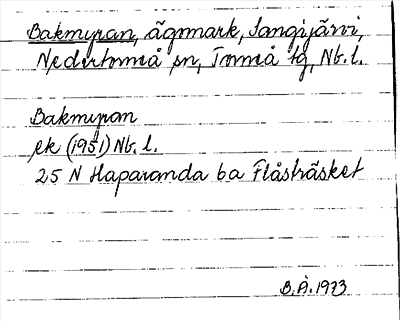 Bakmyran, ägomark, Sangijärvi,
Nedertorneå sn, Torneå tg, Nb. l.
Bakmyran
ek (1951) Nb. l.
25 N Haparanda 6a Flåsträsket
B.Å. 1973